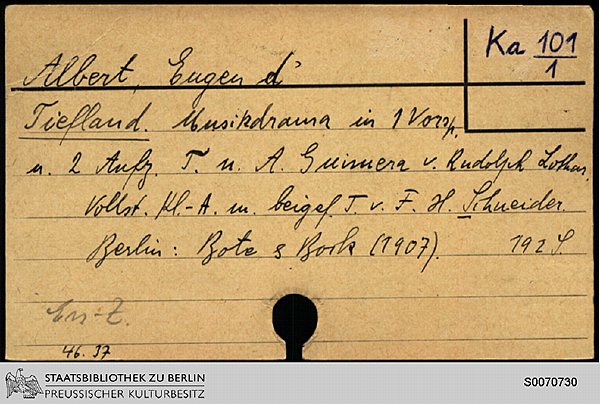 Ka 101
1
Albert, Eugen d'
Tiefland. Musikdrama in 1 Vorsp.
u. 2 Aufz. T. n. A. Guimera v. Rudolph Lothar.
Vollst. Kl.-A. m. beigef. T. v. F. H. Schneider.
Berlin: Bote & Bock (1907). 192 S.
46. 37
STAATSBIBLIOTHEK ZU BERLIN
PREUSSISCHER KULTURBESITZ
S0070730